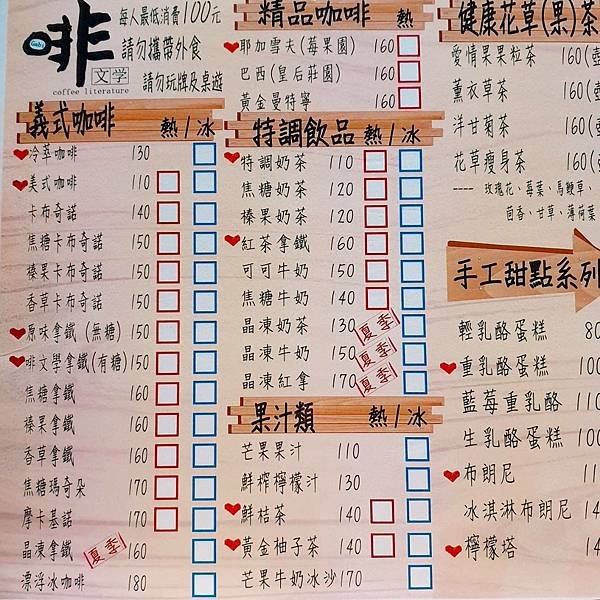 啡
Gabi
文学
coffee literature
每人最低消費100元
請勿攜帶外食
請勿玩牌及桌遊
義式咖啡 熱/冰
冷萃咖啡 130
美式咖啡 110
卡布奇諾 140
焦糖卡布奇諾 150
榛果卡布奇諾 150
香草卡布奇諾 150
原味拿鐵(無糖) 150
啡文學拿鐵(有糖) 150
焦糖拿鐵 160
榛果拿鐵 160
香草拿鐵 160
焦糖瑪奇朵 170
摩卡基諾 170
晶凍拿鐵 夏季 160
漂浮冰咖啡 180
精品咖啡 熱
耶加雪夫(莓果園) 160
巴西(皇后莊園) 160
黃金曼特寧 160
特調飲品 熱/冰
特調奶茶 110
焦糖奶茶 120
榛果奶茶 120
紅茶拿鐵 160
可可牛奶 150
焦糖牛奶 140
晶凍奶茶 130 夏季
晶凍牛奶 150 夏季
晶凍紅拿 170 夏季
果汁類 熱/冰
芒果果汁 110
鮮榨檸檬汁 130
鮮桔茶 140
黃金柚子茶 140
芒果牛奶冰沙 170
健康花草(果)茶
愛情果果粒茶 160(壺
薰衣草茶 160(壺
洋甘菊茶 160(壺
花草瘦身茶 160(壺
---- 玫瑰花、莓葉、馬鞭草、
茴香、甘草、薄荷葉
手工甜點系列
輕乳酪蛋糕 80
重乳酪蛋糕 100
藍莓重乳酪 110
生乳酪蛋糕 100
布朗尼 11
冰淇淋布朗尼 14
檸檬塔 14